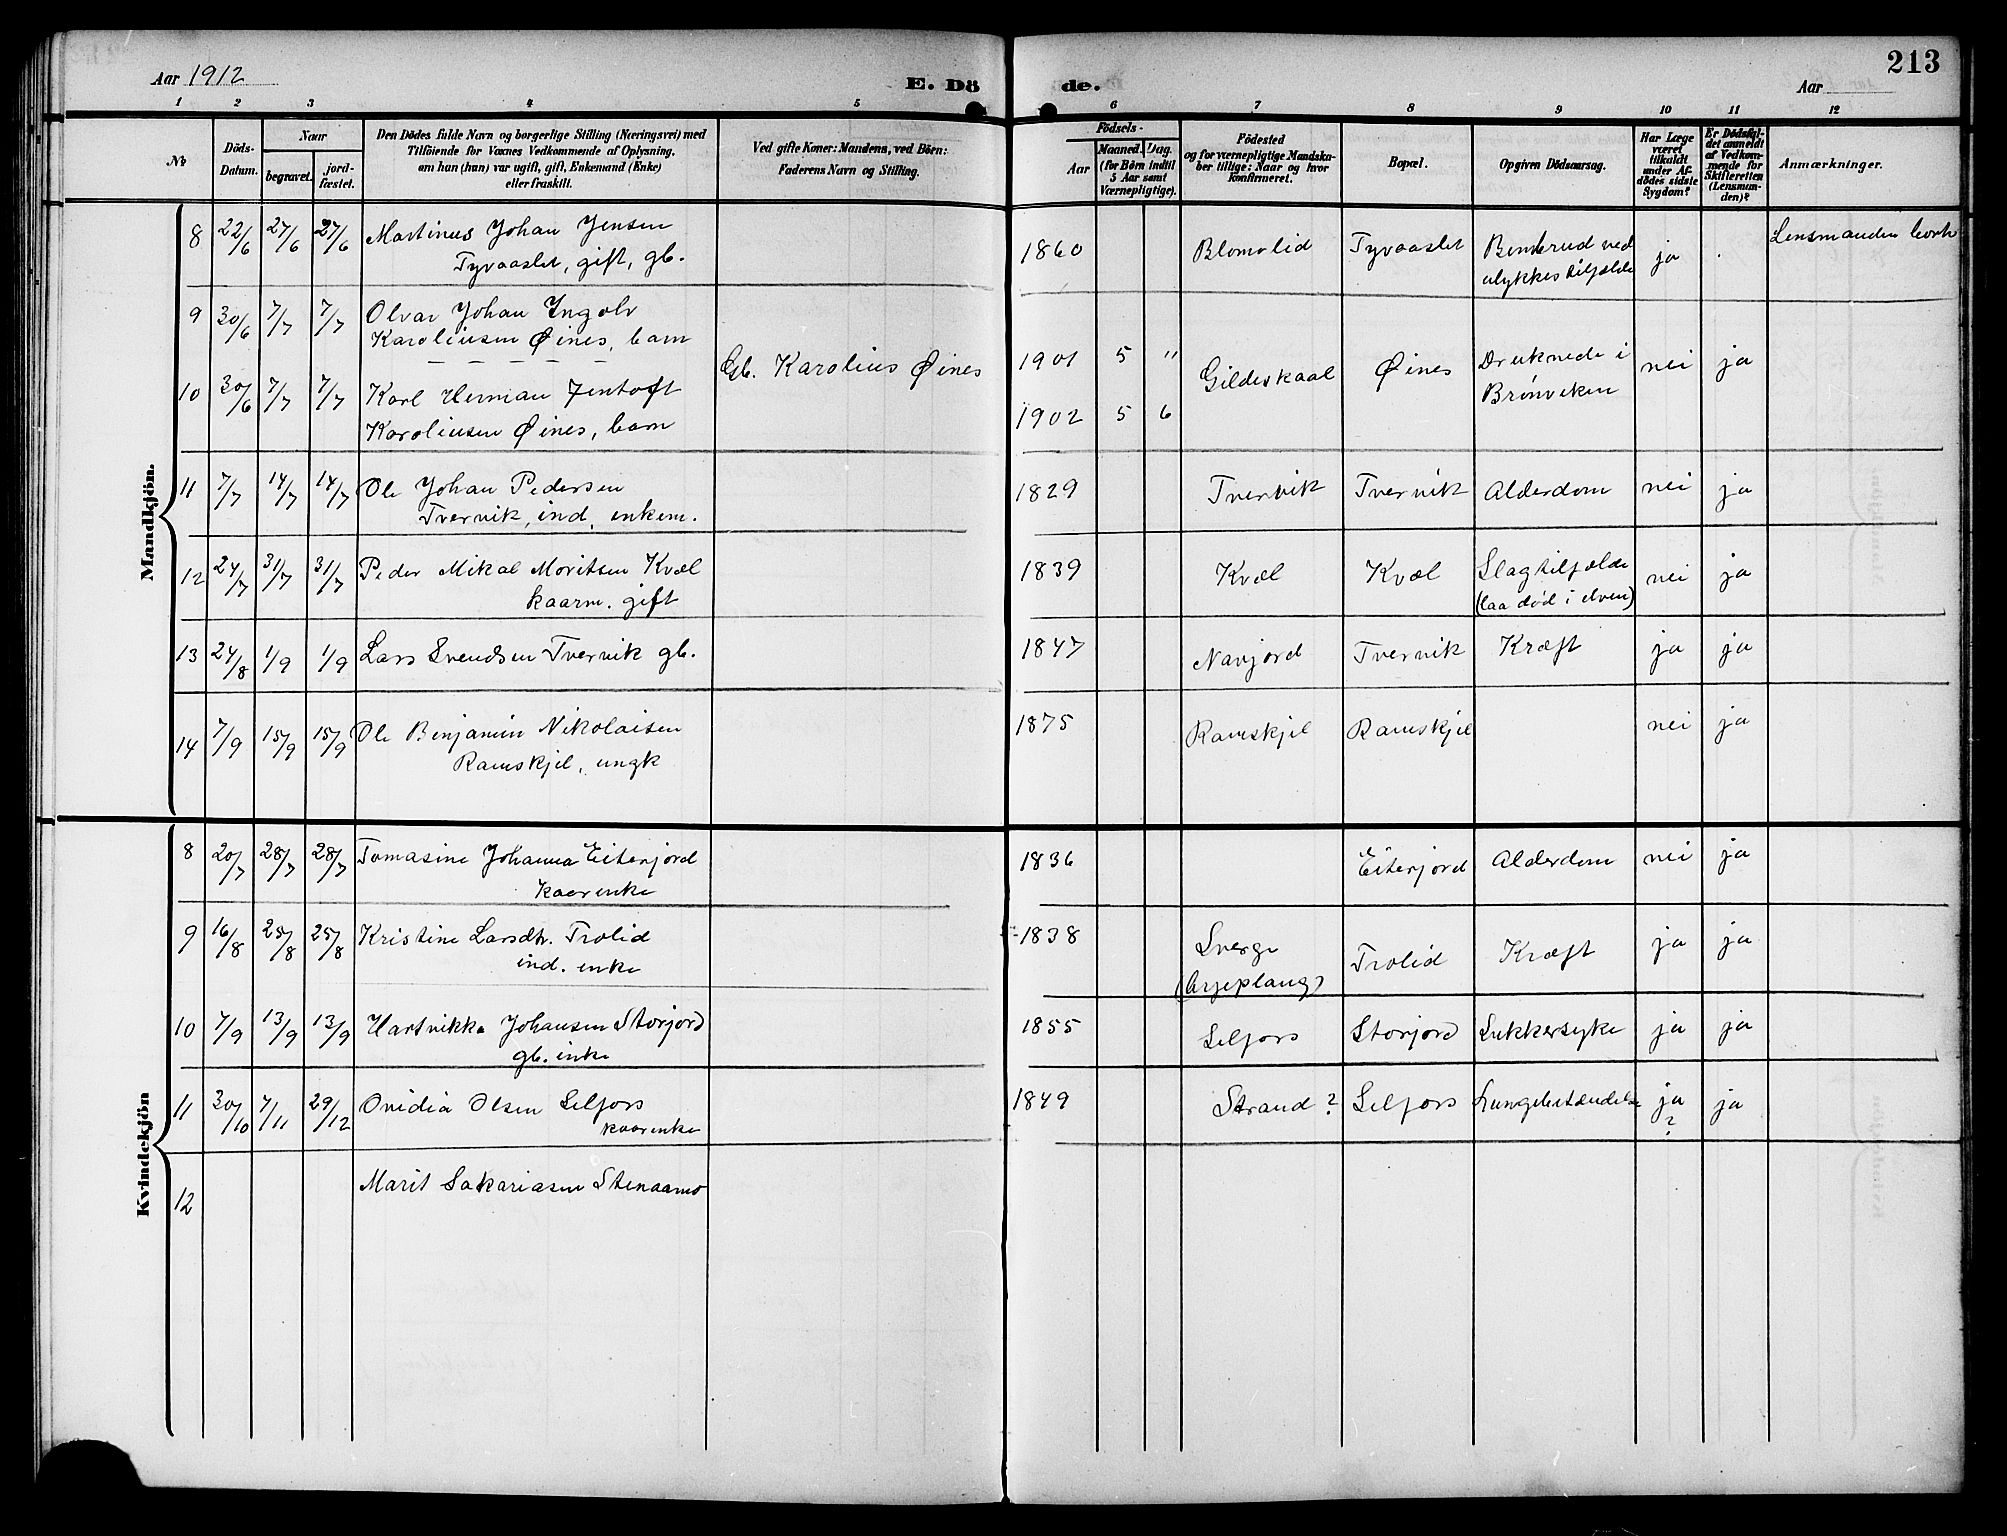 213
Aar 1912
E. Dö de.
Aar
1 2 3 4 5 6 7 8 9 10 11 12
No
Döds-Datum.
Naar
begravet.
jord-fæstet.
Den Dödes fulde Navn og borgerlige Stilling (Næringsvei) med
Tilföiende for Voxnes Vedkommende af Oplysning,
om han (hun) var ugift, gift, Enkemand (Enke)
eller fraskilt.
Ved gifte Koner: Mandens, ved Börn:
Faderens Navn og Stilling.
Födsels-
Aar
Maaned. Dag.
(for Börn indtil
5 Aar samt
Værnepligtige).
Födested
og for værnepligtige Mandska-
ber tillige: Naar og hvor
konfirmeret.
Bopæl.
Opgiven Dödsaarsag.
Har Læge
været
tilkaldt
under Af-
dödes sidste
Sygdom?
Er Dödsfal-
det anmeldt
af Vedkom-
mende for
Skifteretten
(Lensman-
den)?
Anmærkninger.
Mandkjön.
8 22/6 27/6 27/6 Martinus Johan Jensen
Tyvaaslet, gift, gb.
1860 Blomolid Tyvaaslet Benbrud ved
ulykkestilfælde ja
Lensmanden
9 30/6 7/7 7/7 Olvar Johan Ingolv
Karoliusen Øines, barn
Gb. Karolius Øines
1901 5 "
10 30/6 7/7 7/7 Karl Herman Jentoft
Karoliusen Øines, barn
1902 5 6
Gildeskaal Øines Druknede i
Brønviken nei ja
11 7/7 14/7 14/7 Ole Johan Pedersen
Tvervik, ind, enkem.
1829 Tvervik Tvervik Alderdom nei ja
12 24/7 31/7 31/7 Peder Mikal Moritsen Kvæl
kaarm. gift
1839 Kvæl Kvæl Slagtilfælde
(laa død i elven) nei ja
13 24/8 1/9 1/9 Lars Svendsen Tvervik gb.
1847 Navjord Tvervik Kræft ja ja
14 7/9 15/9 15/9 Ole Benjamin Nikolaisen
Ramskjel, ungk
1875 Ramskjel Ramskjel nei ja
Kvindekjön
8 20/7 28/7 28/7 Tomasine Johanna Eiterjord
kaarenke
1836 Eiterjord Alderdom nei ja
9 16/8 25/8 25/8 Kristine Larsdtr. Trolid
ind. enke
1838 Sverge
(Arjeplaug) Trolid Kræft ja ja
10 7/9 13/9 13/9 Hartvikka Johansen Storjord
gb. enke
1855 Selfors Storjord Sukkersyke ja ja
11 30/10 7/11 29/12 Ovidia Olsen Selfors
kaarenke
1849 Strand? Selfors Lungebetændelse ja
? ja
12 Marit Sakariasen Stenaamo